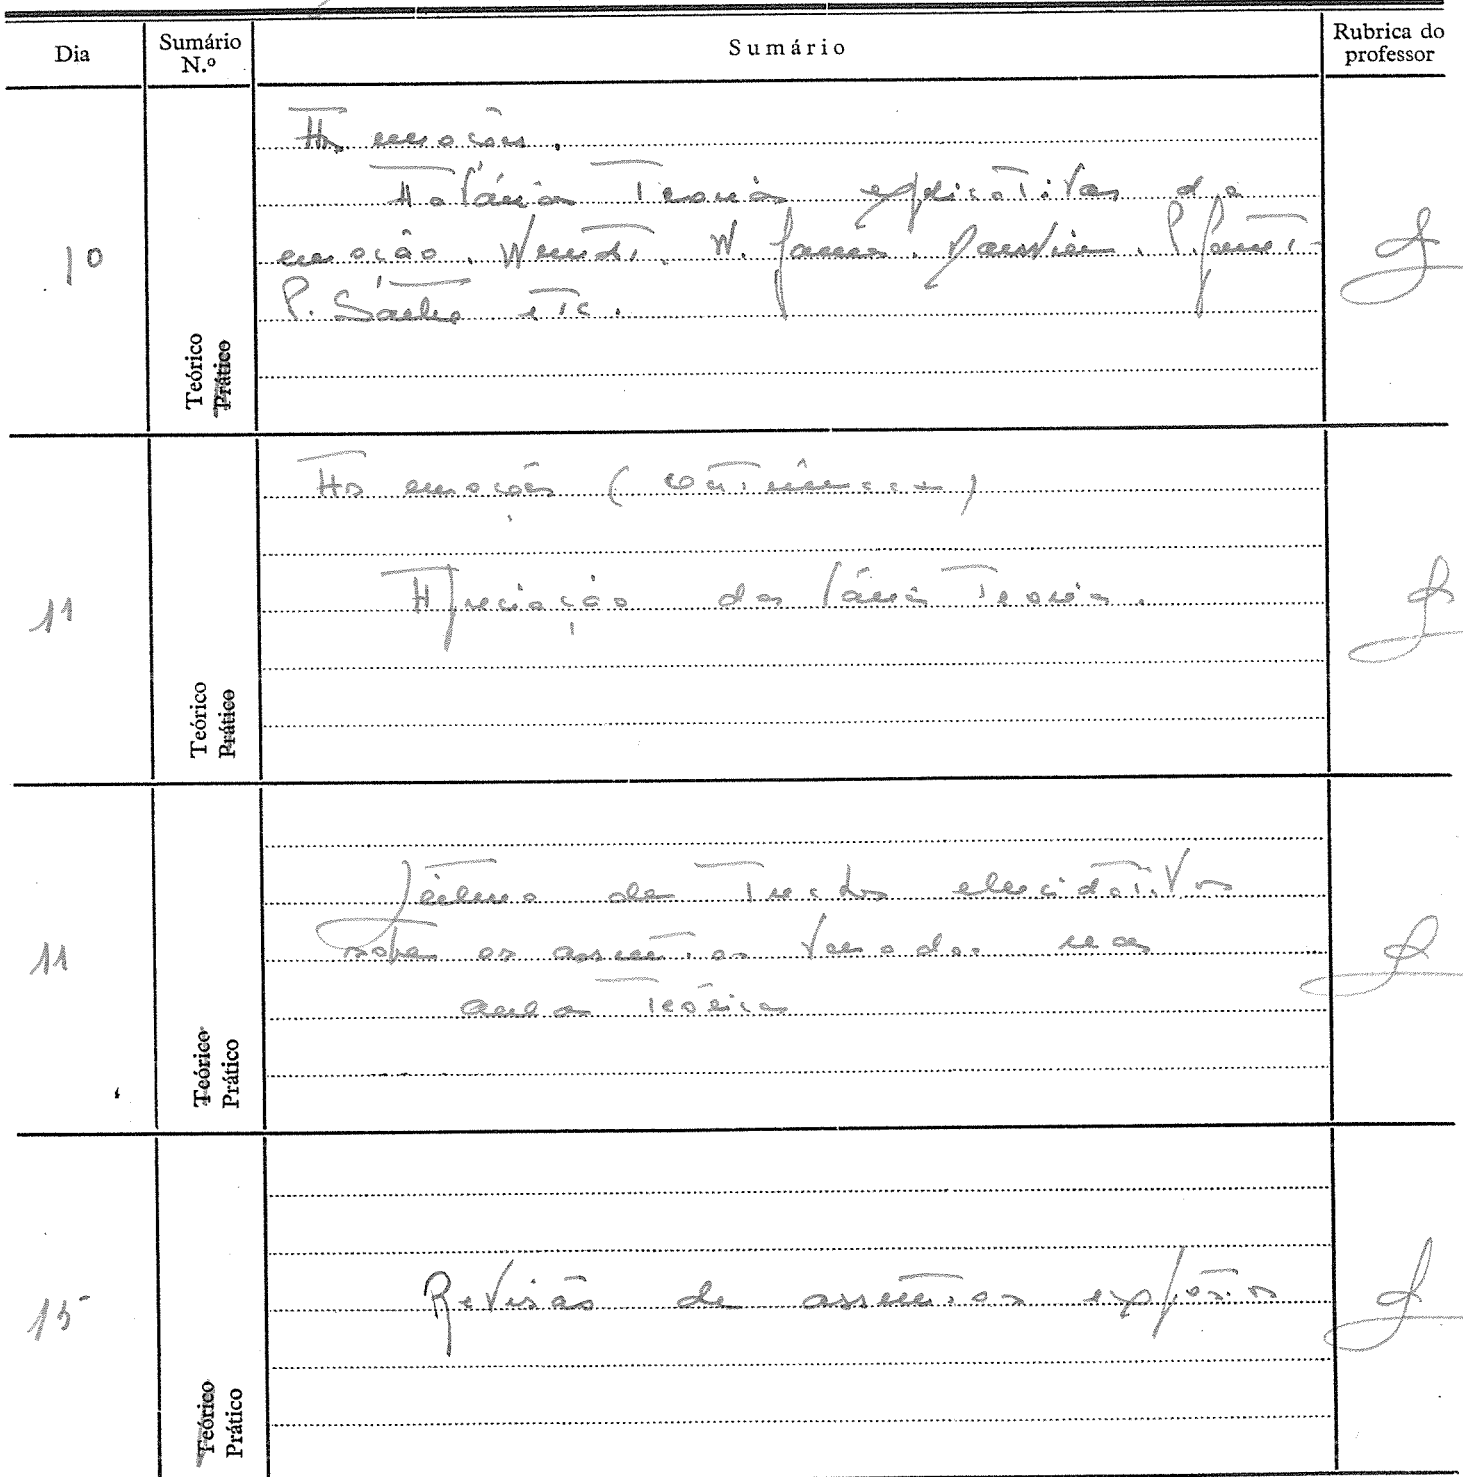 Dia
Sumário N.º
Sumário
Rubrica do professor
10
Teórico
Prático
As emoções.
As várias teorias explicativas da
emoção. Wundt. W. James. Darwin. P. Janet.
P. Sartre etc.
11
Teórico
Prático
As emoções (continuação)
Apreciação das várias teorias.
11
Teórico
Prático
Leitura de trechos elucidativos
sobre os assuntos versados nas
aulas teóricas
15
Teórico
Prático
Revisão de assuntos expostos